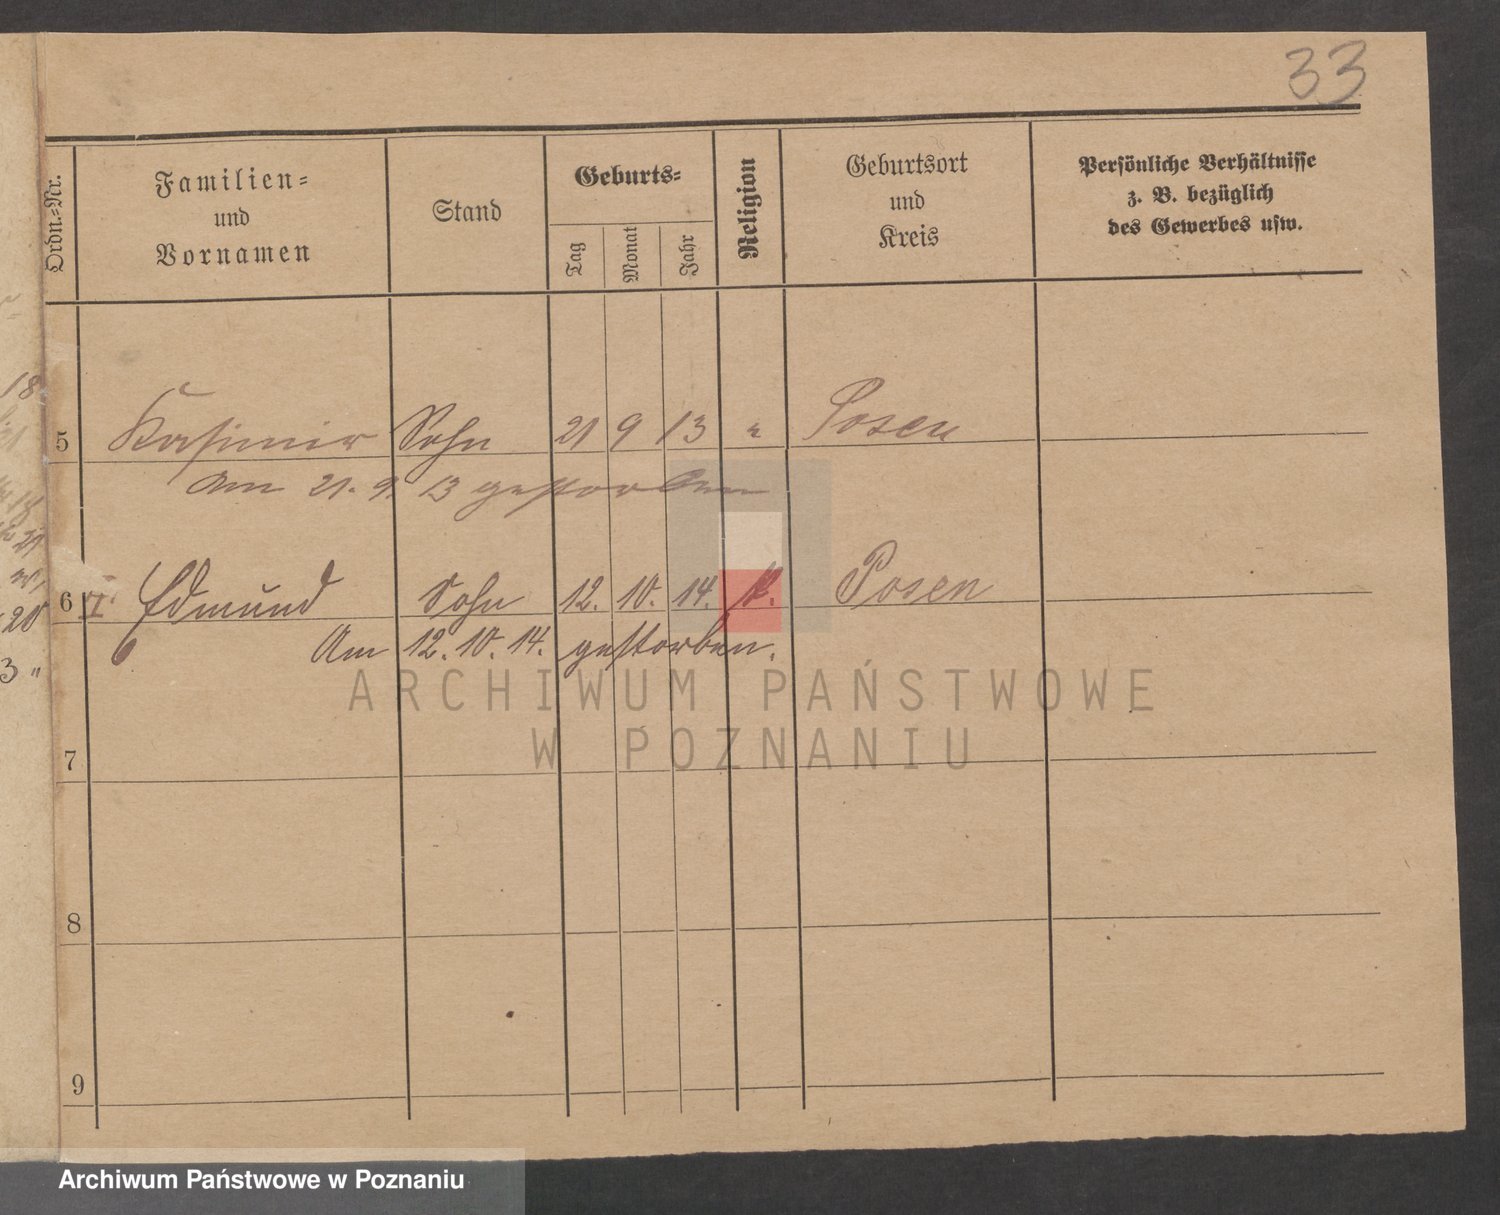 33
Ordn.-Nr.
Familien-
und
Vornamen
Stand
Geburts-
Tag
Monat
Jahr
Religion
Geburtsort
und
Kreis
Persönliche Verhältnisse
z. B. bezüglich
des Gewerbes usw.
18
5 Kasimir Sohn 21 9 13 " Posen
am 21. 9. 13 gestorben
21
6 Edmund Sohn 12. 10. 14. k. Posen
20
Am 12. 10. 14. gestorben.
3 "
ARCHIWUM PAŃSTWOWE
W POZNANIU
7
8
9
Archiwum Państwowe w Poznaniu